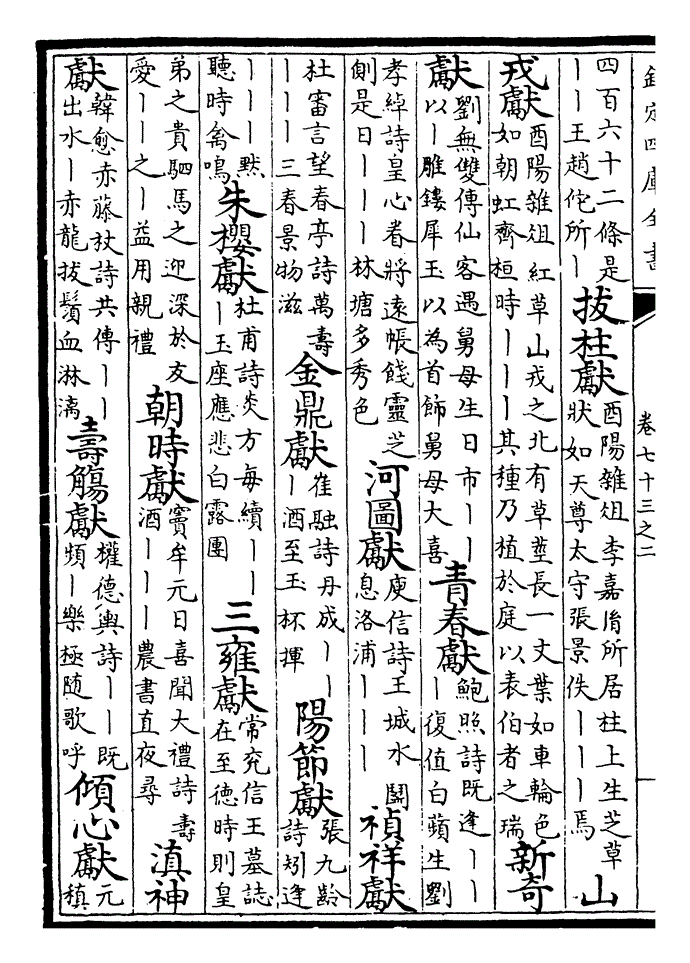 欽定四庫全書
卷七十三之二
四百六十二條是
丨丨王趙佗所丨
拔柱獻
酉陽雜俎李嘉胤所居柱上生芝草
狀如天尊太守張景佚丨丨丨焉
山
戎獻
酉陽雜俎紅草山戎之北有草莖長一丈葉如車輪色
如朝虹齊桓時丨丨丨其種乃植於庭以表伯者之瑞
新奇
獻
劉無雙傳仙客遇舅母生日市丨丨
以丨雕鏤犀玉以為首飾舅母大喜
青春獻
鮑照詩既逢丨丨
丨復值白蘋生劉
孝綽詩皇心眷將遠帳餞靈芝
側是日丨丨丨林塘多秀色
河圖獻
庾信詩王城水鬭
息洛浦丨丨丨
禎祥獻
杜審言望春亭詩萬壽
丨丨丨三春景物滋
金鼎獻
崔融詩丹成丨丨
丨酒至玉杯揮
陽節獻
張九齡
詩矧逢
丨丨丨黙
聽時禽鳴
朱櫻獻
杜甫詩炎方每續丨丨
丨玉座應悲白露團
三雍獻
常兖信王墓誌
在至德時則皇
弟之貴駟馬之迎深於友
愛丨丨之丨益用親禮
朝時獻
竇牟元日喜聞大禮詩壽
酒丨丨丨農書直夜尋
滇神
獻
韓愈赤藤杖詩共傳丨丨
出水丨赤龍拔鬚血淋漓
壽觴獻
權德輿詩丨丨既
頻丨樂極随歌呼
傾心獻
元
稹